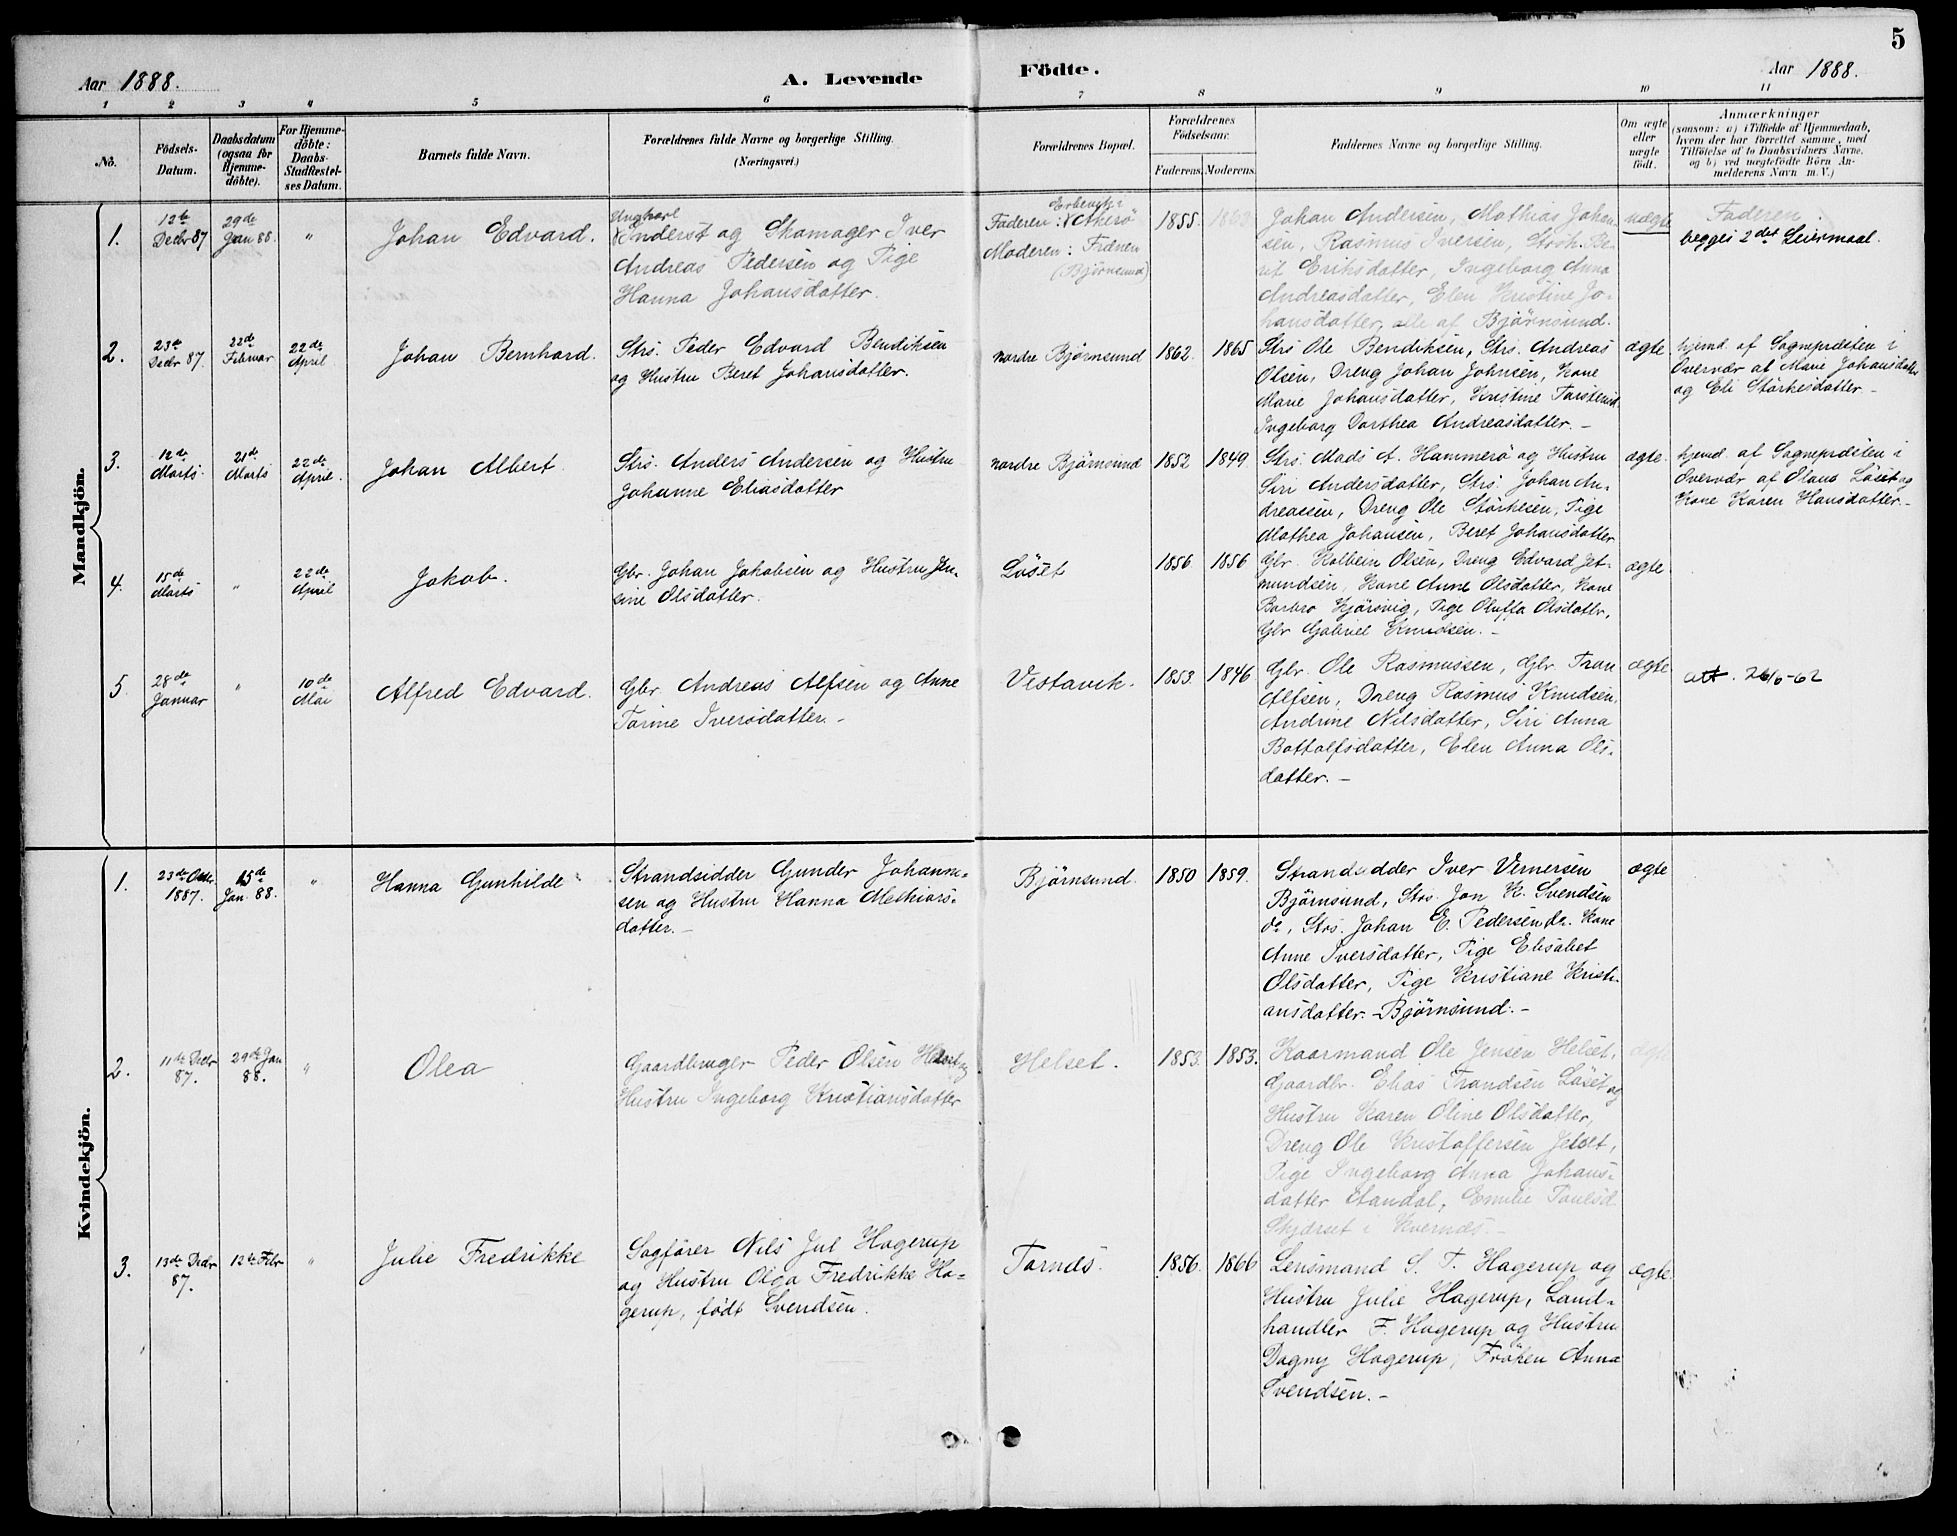 5
Aar 1888.
A. Levende Födte.
Aar 1888.
1 2 3 4 5 6 7 8 9 10 11
No.
Födsels-
Datum.
Daabsdatum
(ogsaa for
Hjemme-
döbte).
For Hjemme-
döbte:
Daabs-
Stadfæstel-
ses Datum.
Barnets fulde Navn.
Forældrenes fulde Navne og borgerlige Stilling.
(Næringsvei.)
Forældrenes Bopæl.
Forældrenes
Födselsaar.
Faderens.
Moderens.
Faddernes Navne og borgerlige Stilling.
Om ægte
eller
uægte
födt.
Anmærkninger
(saasom: a) i Tilfælde af Hjemmedaab,
hvem der har forrettet samme, med
Tilföielse af to Daabsvidners Navne,
og b) ved uægtefödte Börn An-
melderens Navn m. V.)
Mandkjön.
1.
12te
Decbr 87
29de
Jan 88.
"
Johan Edvard.
Ungkarl
og Skomager Iver
Andreas Pedersen og Pige
Hanna Johansdatter.
Faderen: Akerö
Moderen: Frænen
(Björnsund)
1855.
1863
Johan Andersen, Mathias Johan-
sen, Rasmus Iversen, Be-
rit Eriksdatter, Ingeborg Anna
Andreasdatter, Elen Kristine Jo-
hansdatter, alle af Björnsund.
uægte
Faderen.
begges 2det Leiermaal.
2.
23de
Decbr 87.
22de
Februar
22de
April
Johan Bernhard.
Strs. Peder Edvard Bendiksen
og Hustru Beret Johansdatter.
nordre Björnsund
1862.
1865
Strs Ole Bendiksen, Strs. Andreas
Olsen, Dreng Johan Johnsen, Kone
Marie Johansdatter, Kristine Torstensd.
Ingeborg Dorthea Andreasdatter. –
ægte
hjemd. af Sognepræsten i
Overvær af Marie Johansdatter
og Eli Störkesdatter –
3.
12de
Marts.
21de
Marts
22de
April.
Johan Albert
Strs. Anders Andersen og Hustru
Johanne Eliasdatter
nordre Björnsund
1852
1849.
Strs. Mads A. Hammerö og Hustru
Siri Andersdatter, Strs. Johan An-
dreassen, Dreng Ole Störkesen, Pige
Mathea Johansen, Beret Johansdatter
ægte.
hjemd. af Sognepræsten i
Overvær af Olaus Löset og
Kone Karen Hansdatter. –
4.
15de
Marts
"
22de
April
Jakob.
Gbr. Johan Jakobsen og Hustru Jen-
sine Olsdatter.
Löset
1856
1856
Gbr. Kolbein Olsen, Dreng Edvard Jet-
mundsen, Kone Anne Olsdatter, Kone
Barbro Kjörsvig, Pige Oluffa Olsdatter,
Gbr Gabriel Knudsen. –
ægte
5.
28de
Januar
"
10de
Mai
Alfred Edvard.
Gbr. Andreas Alfsen og Anne
Torine Iversdatter. –
Vestavik.
1853.
1846
Gbr. Ole Rasmussen, Gbr. Tron
Alfsen, Dreng Rasmus Knudsen,
Andrine Nilsdatter, Siri Anna
Bottolfsdatter, Elen Anna Ols-
datter. –
ægte
att. 26/6-62
Kvindekjön.
1.
1887.
15de
Jan. 88.
"
Hanna Gunhilde
Strandsidder Gunder Johanne-
sen og Hustru Hanna Mathias-
datter. –
Björnsund.
1850
1859.
Strandsidder Iver Vernersen
Björnsund, Strs. Jon K. Svendsen
do., Strs. Johan E. Pedersen do. Kone
Anne Iversdatter, Pige Elisabet
Olsdatter, Pige Kristiane Kristi-
ansdatter. – Björnsund. –
ægte
2.
11te Decbr
87.
29de Jan
88.
"
Olea
Gaardbruger Peder Olsen Helset og
Hustru Ingeborg Kristiansdatter
Helset.
1853.
1853.
Kaarmand Ole Jensen Helset,
Gaardbr. Elias Trondsen Löset og
Hustru Karen Oline Olsdatter,
Dreng Ole Kristoffersen
Pige Ingeborg Anna Johans-
datter Aandal, Emilie Paulsd
i Kvernæs. –
ægte
3.
13de Decbr
87.
12te Febr
"
Julie Fredrikke
Sagförer Nils Jul Hagerup
og Hustru Olga Fredrikke Ha-
gerup, födt Svendsen.
Tornæs.
1856.
1866
Lensmand S. T. Hagerup og
Hustru Julie Hagerup, Land-
handler F. Hagerup og Hustru
Dagny Hagerup, Fröken Anna
Svendsen. –
ægte.